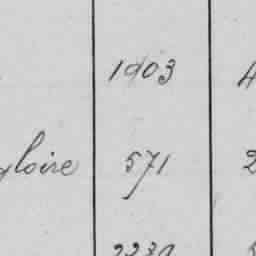 1903 4
gloire 571 2
2239